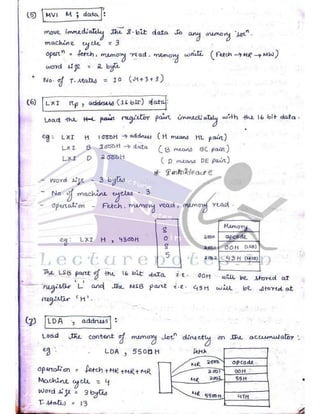 (5) MVI M, data :
move immediately the 8-bit data to any memory locn.
machine cycle = 3
opern = fetch, memory read, memory write (Fetch → MR → MW)
word size = 2 byte
No. of T-states = 10 (4+3+3)
(6) LXI Rp, address (16 bit) data
Load the register pair immediately with the 16 bit data.
eg: LXI H 1000H → address (H means HL pair)
LXI B → data (B means BC pair)
LXI D 2000H
(D means DE pair)
- Word size - 3 bytes
- No of machine cycles - 3
- Operation - Fetch, memory read, memory read.
Memory
opcode
00H (LSB)
eg: LXI H, 4300H
Lecturenotes
The LSB part of the 16 bit data i.e. 00H will be stored at
register 'L' and the MSB part i.e. 43H will be stored at
register 'H'.
(7) LDA, address :
Load the content of memory locn directly on the accumulator.
eg. LDA, 5500H
fetch
opcode
operation = fetch + MR + MR + MR
MR 2001 00H
Machine cycle = 4
MR 2002 55H
Word size = 3 bytes
T-states = 13
MR 5500H 47H